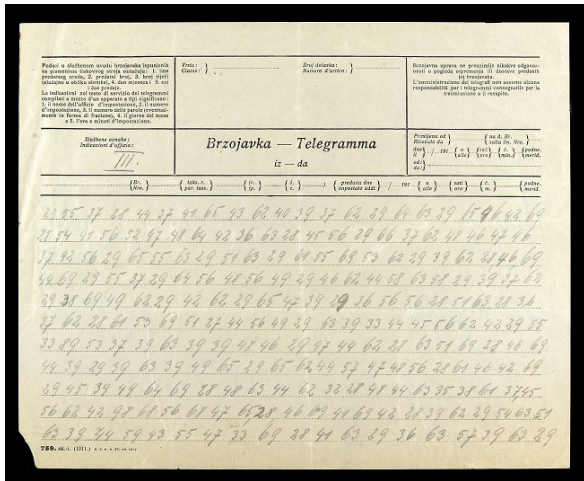 Podaci u službenom uvodu brzojavke ispunjenih
na
označuju: 1. ime
predatnog ureda, 2. predatni broj, 3. broj riječi
(slučajno u obliku slomka), 4. dan mjeseca i 5. sat
i dan predaje.
Le indicazioni nel testo di servizio dei telegrammi
compilati a mezzo d'un apparato a tipi significano:
1. il nome dell'ufficio d'impostazione, 2. il numero
d'impostazione, 3. il numero delle parole (eventual-
mente in forma di frazione), 4. il giorno del mese
e 5. l'ora e minuti d'impostazione.
Vrsta:
Classe:
Broj dolazka:
Numero d'arrivo:
Brzojavna uprava ne preuzimlje nikakve odgovor-
nosti u pogledu otpravanja ili dostave predanih
joj brzojavka.
L'amministrazione dei telegrafi non assume alcuna
responsabilità per i telegrammi consegnatile per la
trasmissione o il recapito.
Službene oznake:
Indicazioni d'ufficio:
III.
Brzojavka — Telegramma
iz — da
Primljena od
Ricevuto da
na d. Br.
sulla lin. Nro.
dne
il
/ 191
u
alle
sati
ore
č.
m.
podne.
merid.
od:
da:
Br.
Nro.
taks. r.
par. tass.
predana dne
impostato addì
/ 191
u
alle
sati
ore
č.
m.
podne.
merid.
29 55 37 28 44 27 41 65 43 62 40 39 37 62 29 64 63 29 46 42 69
28 54 41 56 52 47 48 64 42 36 63 28 45 56 29 66 37 62 48 46 47 46
37 42 56 29 65 55 63 29 51 63 29 61 55 69 53 62 29 39 62 28 46 69
44 69 29 55 37 29 64 56 48 56 49 29 46 62 44 58 63 58 29 39 37 62
29 38 69 49 62 29 42 62 29 65 47 39 29 36 56 56 28 51 63 28 36
37 62 28 61 53 69 51 27 44 56 49 29 63 39 33 44 45 56 62 42 29 55
33 89 53 37 39 63 39 39 48 46 29 47 44 62 28 63 51 69 28 46 69
44 39 29 39 63 39 49 65 29 65 62 44 57 47 48 56 28 61 46 42 69
29 45 39 49 64 69 28 48 63 44 62 32 28 48 44 63 35 38 61 37 45
56 62 42 98 68 56 68 47 65 28 46 69 41 69 42 28 39 62 29 54 63 51
63 39 44 59 43 55 47 33 69 28 41 63 29 36 63 57 39 63 29
759. (1911.)